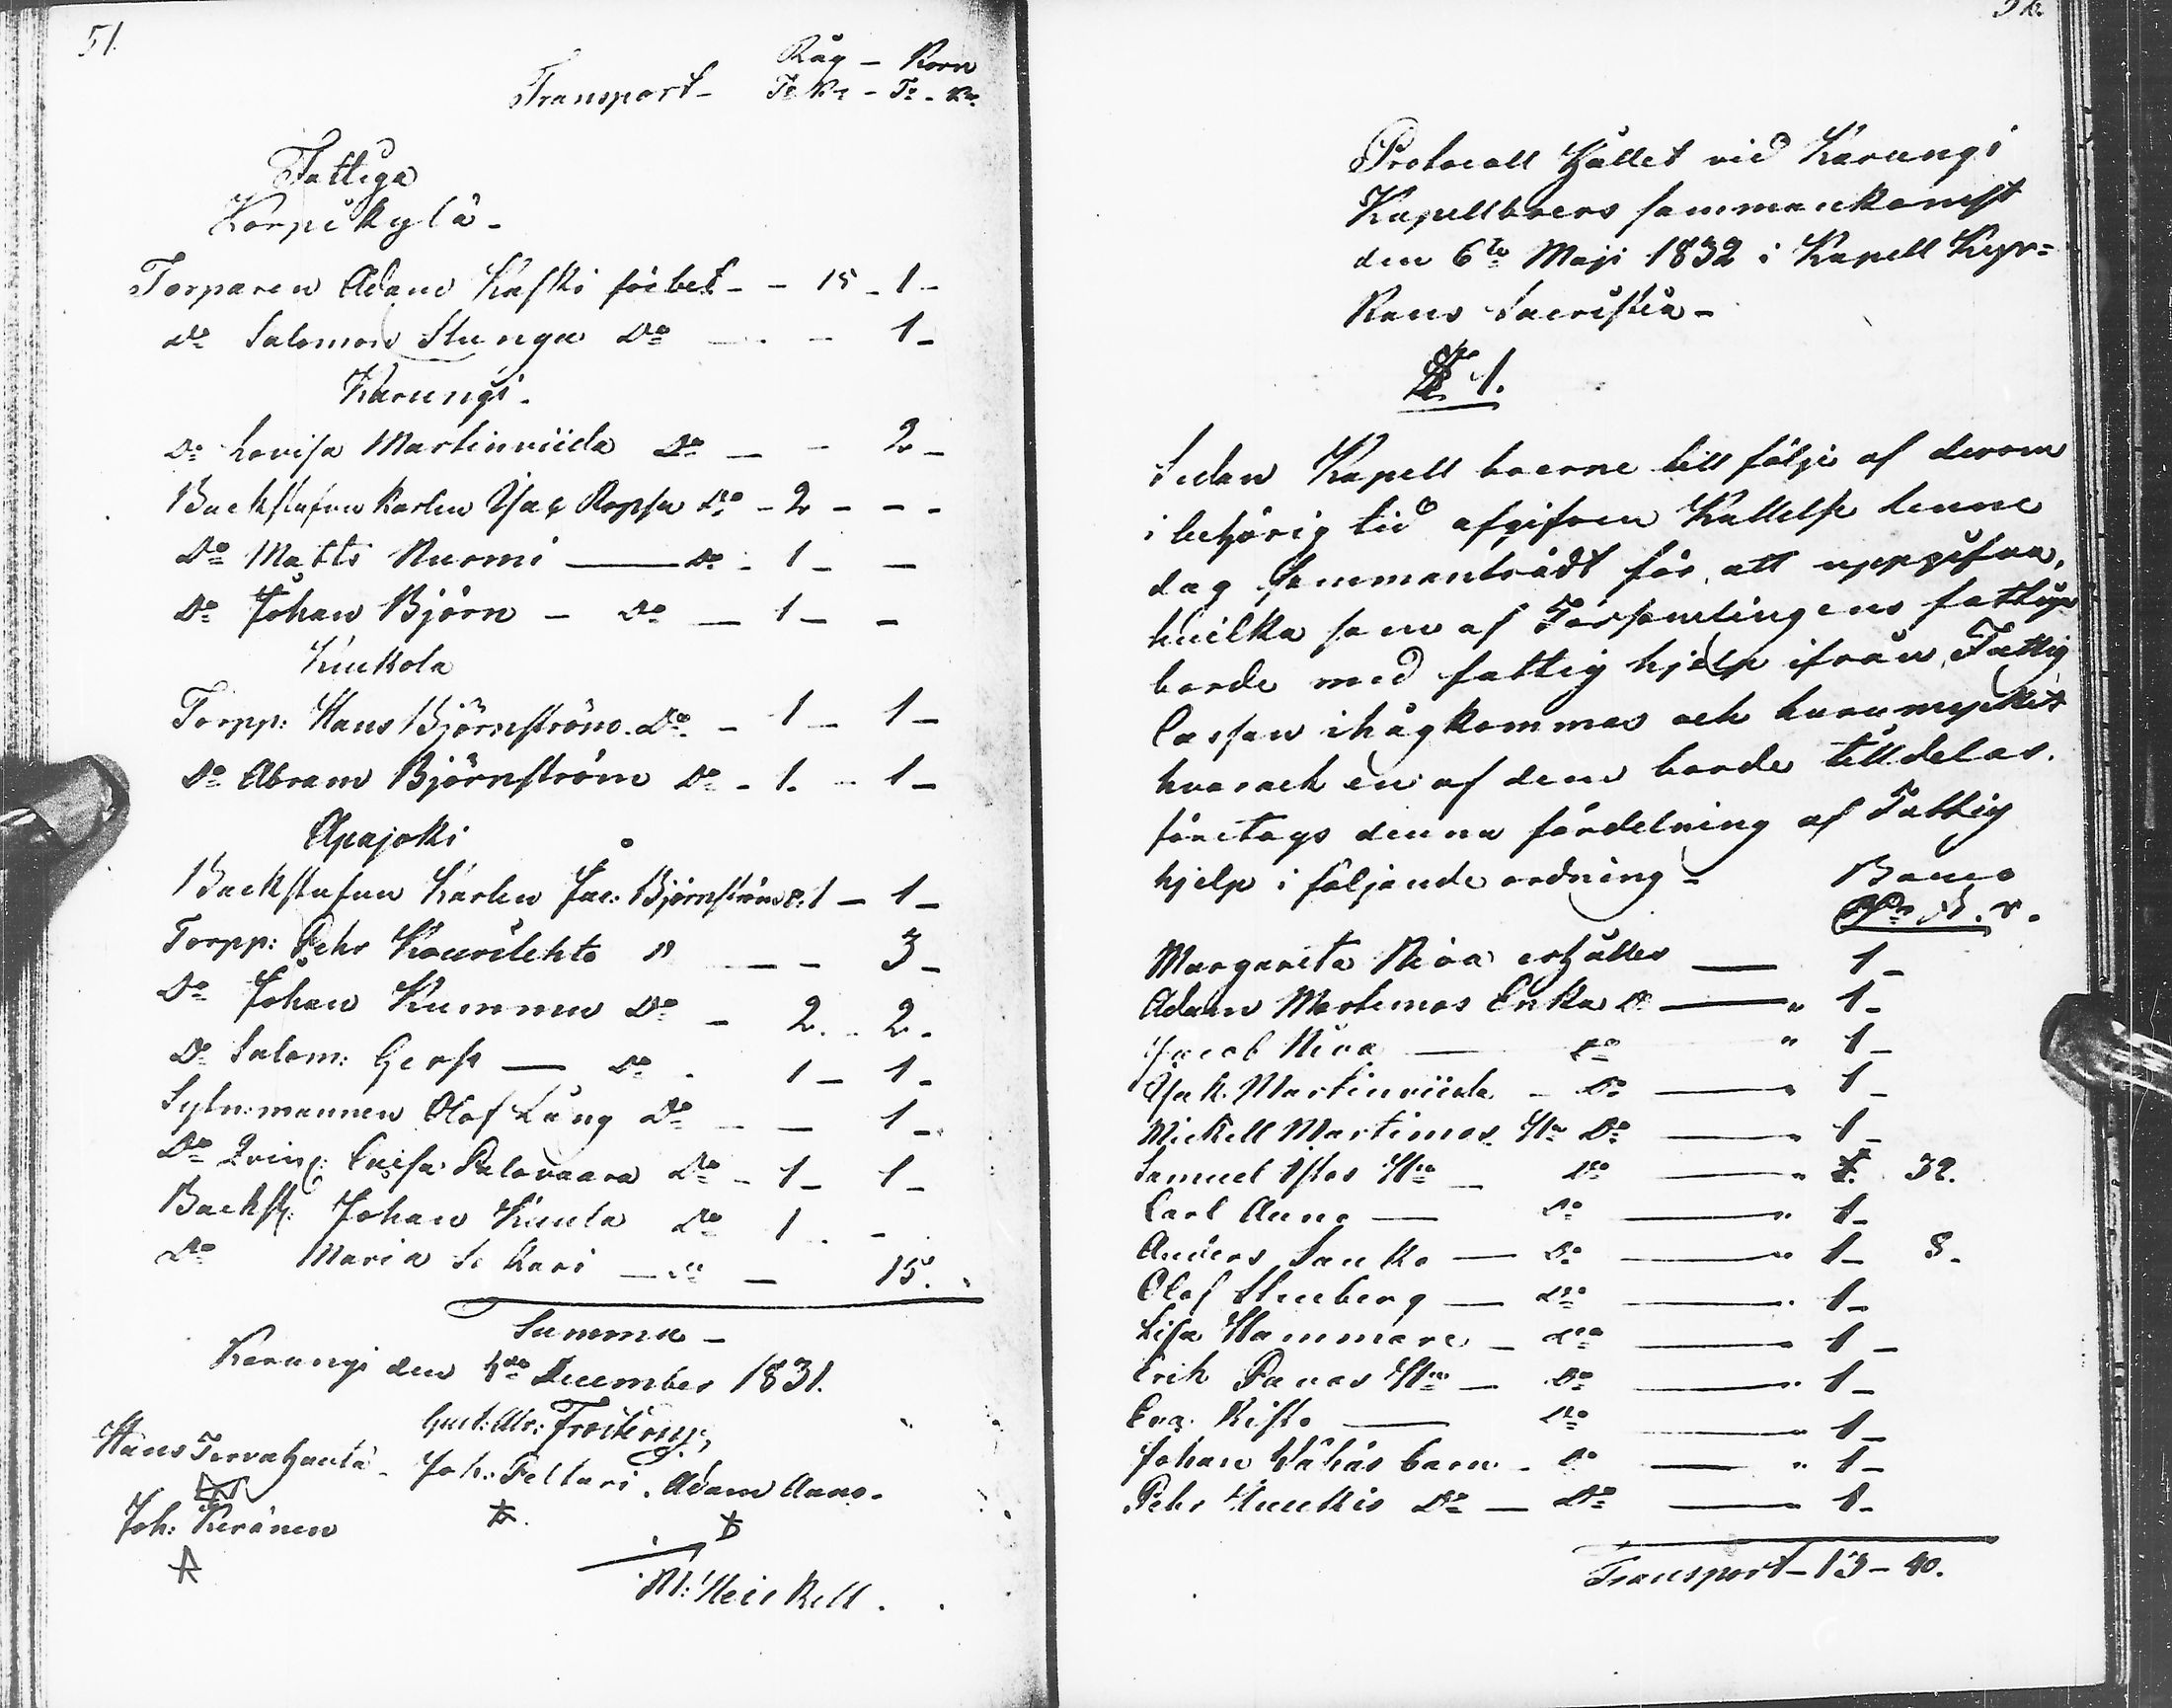 51.
Råg – Korn
Transport – Tr Kr – Tr – Kr.
Fattiga
Korpikylä –
Torparen Adam Kafski förbet – – 15 – 1 –
do Salomon Stunga Do – . – 1 –
Karungi –
Do Lovisa Martinviida Do – – 2 –
Backstufvu karlen Isac Roppa Do – 2 – – –
Do Matts Nurmi — Do – 1 – –
Do Johan Björn – Do – 1 – –
Kuckola
Torpp: Hans Björnström. Do – 1 – 1 –
Do Abram Björnström Do – 1. – 1 –
Apajoki
Backstufvu Karlen Jac: Björnström 1 – 1 –
Torpp: Pehr Kourilehto – – 3 –
Do Johan Kummu Do – 2. – 2.
Do Salom: Gerss — Do . 1 – 1 –
Sytnsmannen Olof Lång Do – – 1 –
Do Caisa Palovaara Do – 1 – 1 –
Backst: Johan Kauta Do 1 . –
Do Maria – do – 15.
Summa –
Karungi den December 1831.
Gust: Abr: Froiterus,
Hans Tervahauta – Joh: Peltari. Adam Auno.
Joh: Keränen
M: Heickell.
52.
Protocoll hållet vid Karungi
Kapellboers sammankomst
den 6te Maji 1832 i Kapell Kyr=
kans Sacristia –
§ 1.
Sedan Kapell boerne till följe af derom
i behörig tid afgifven Kallelse denne
dag sammanträdt för att uppgifva,
hvilka som af Församlingens fattige
borde med fattig hjelp ifrån Fattig
Cassan ihågkommas och huru mycket
hvar och en af dem borde tilldelas.
företogs denna fördelning af Fattig
hjelp i följande ordning –
Banco
Rdr s. r.
Margareta Niva erhåller — 1 –
Adam Martimos Enka Do — " 1 –
Jacob Niva — Do " 1 –
Isak Martinviida – Do — " 1 –
Mickell Martimos Hu Do — " 1 –
Samuel Hu – Do — " 32.
Carl Auno — Do — " 1 –
Anders Sauko — Do — " 1 – 8 –
Olof Stenberg — Do — " 1 –
Lisa Hammare – Do — " 1 –
Erik Panas Hu – Do — " 1 –
Eva Kisto — Do — " 1 –
Johan Vähäs barn – Do — " 1 –
Pehr Do — Do — 1 –
Transport – 13 – 40.